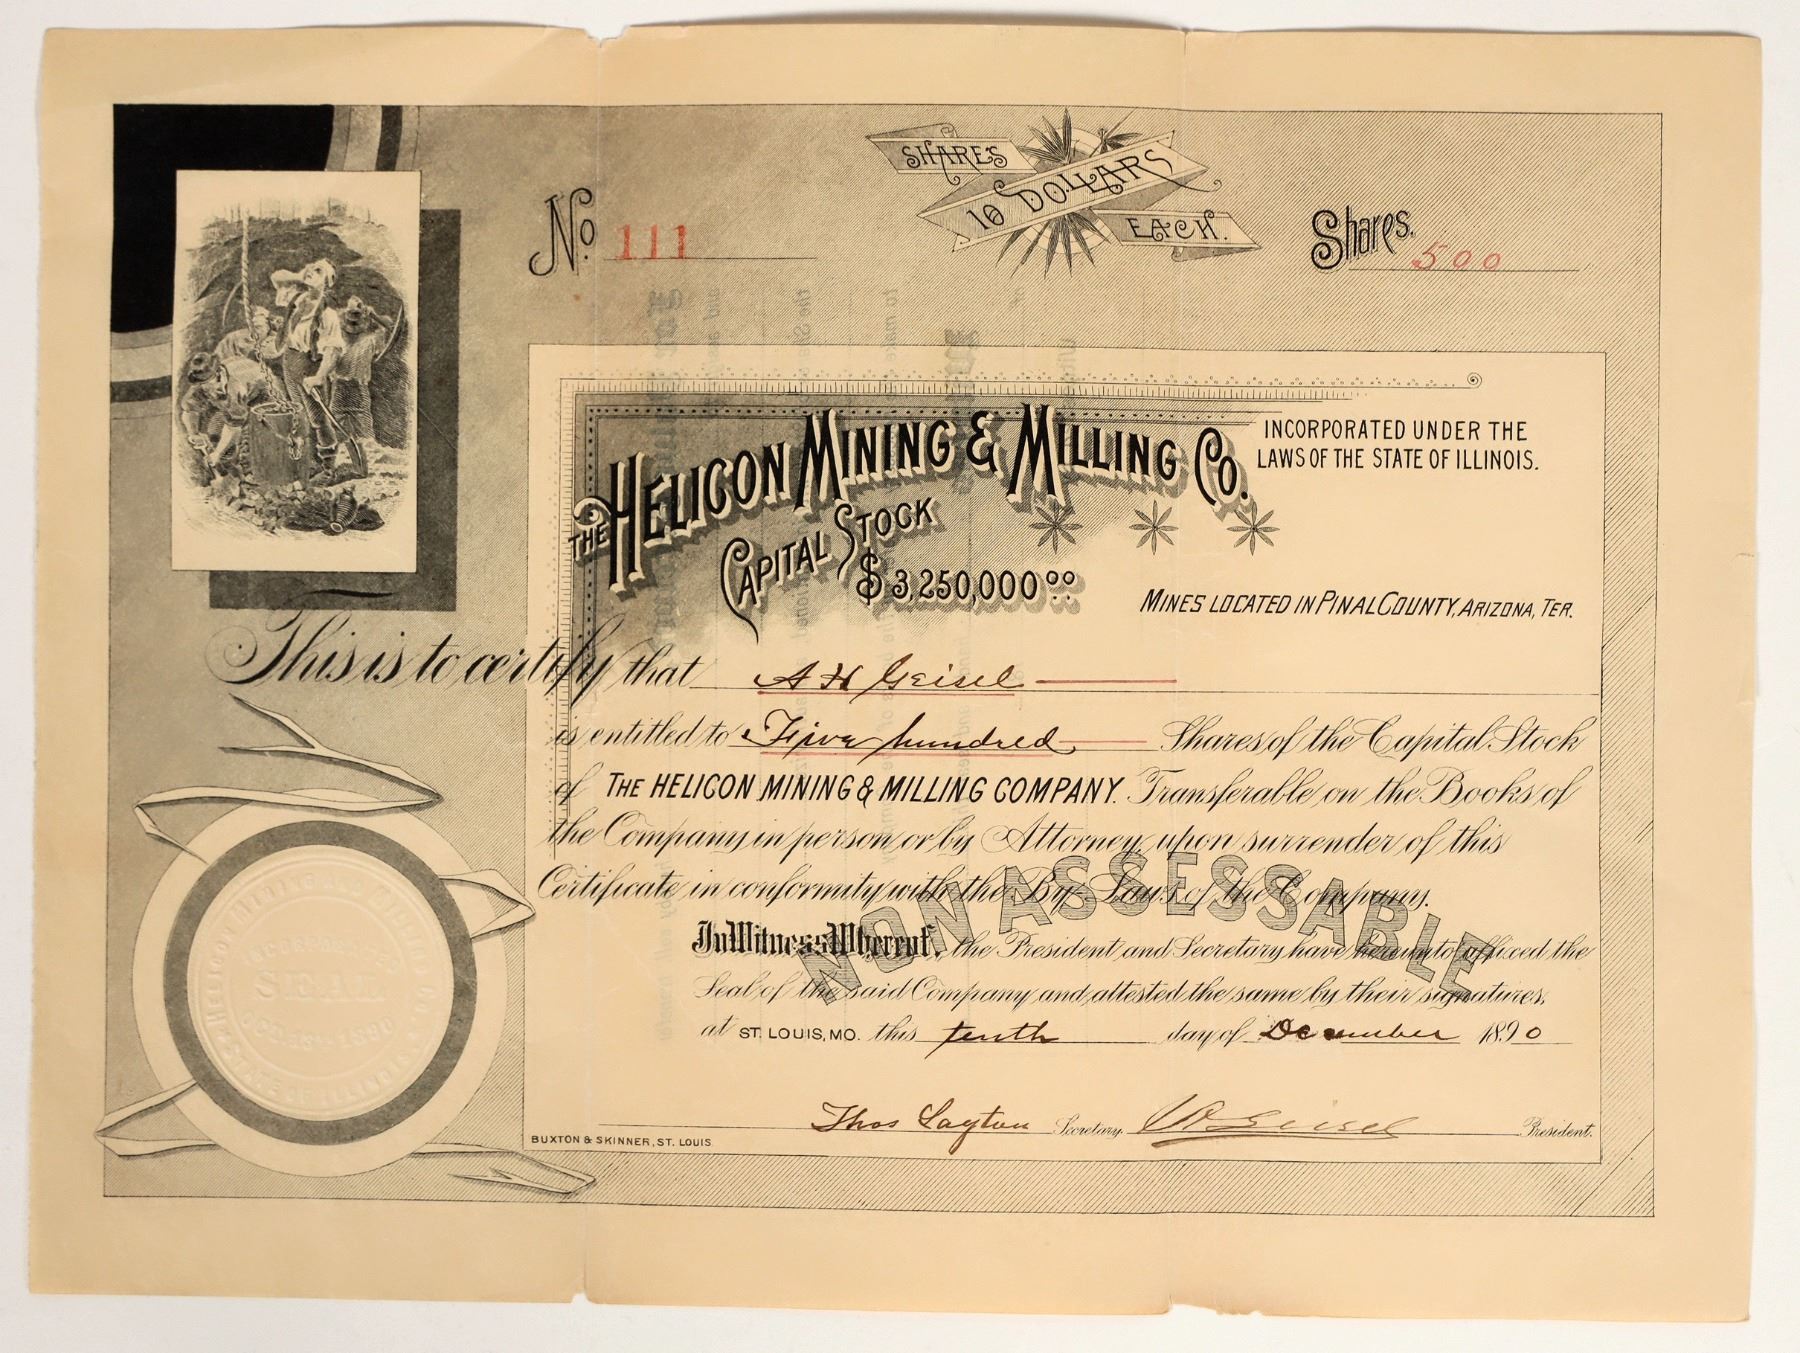 SHARES
10 DOLLARS
EACH.
No. 111
Shares. 500
THE HELICON MINING & MILLING CO.
INCORPORATED UNDER THE
LAWS OF THE STATE OF ILLINOIS.
CAPITAL STOCK
$3,250,000 00
MINES LOCATED IN PINAL COUNTY, ARIZONA, TER.
This is to certify that A H Geisel
is entitled to Five hundred Shares of the Capital Stock
of THE HELICON MINING & MILLING COMPANY. Transferable on the Books of
the Company in person or by Attorney, upon surrender of this
Certificate in conformity with the By-Laws of the Company.
NON ASSESSABLE
In Witness Whereof, the President and Secretary have hereunto affixed the
Seal of the said Company and attested the same by their signatures,
at ST. LOUIS, MO. this tenth day of December 1890
Thos Layton Secretary. Geisel President.
BUXTON & SKINNER, ST. LOUIS
SEAL
STATE OF ILLINOIS